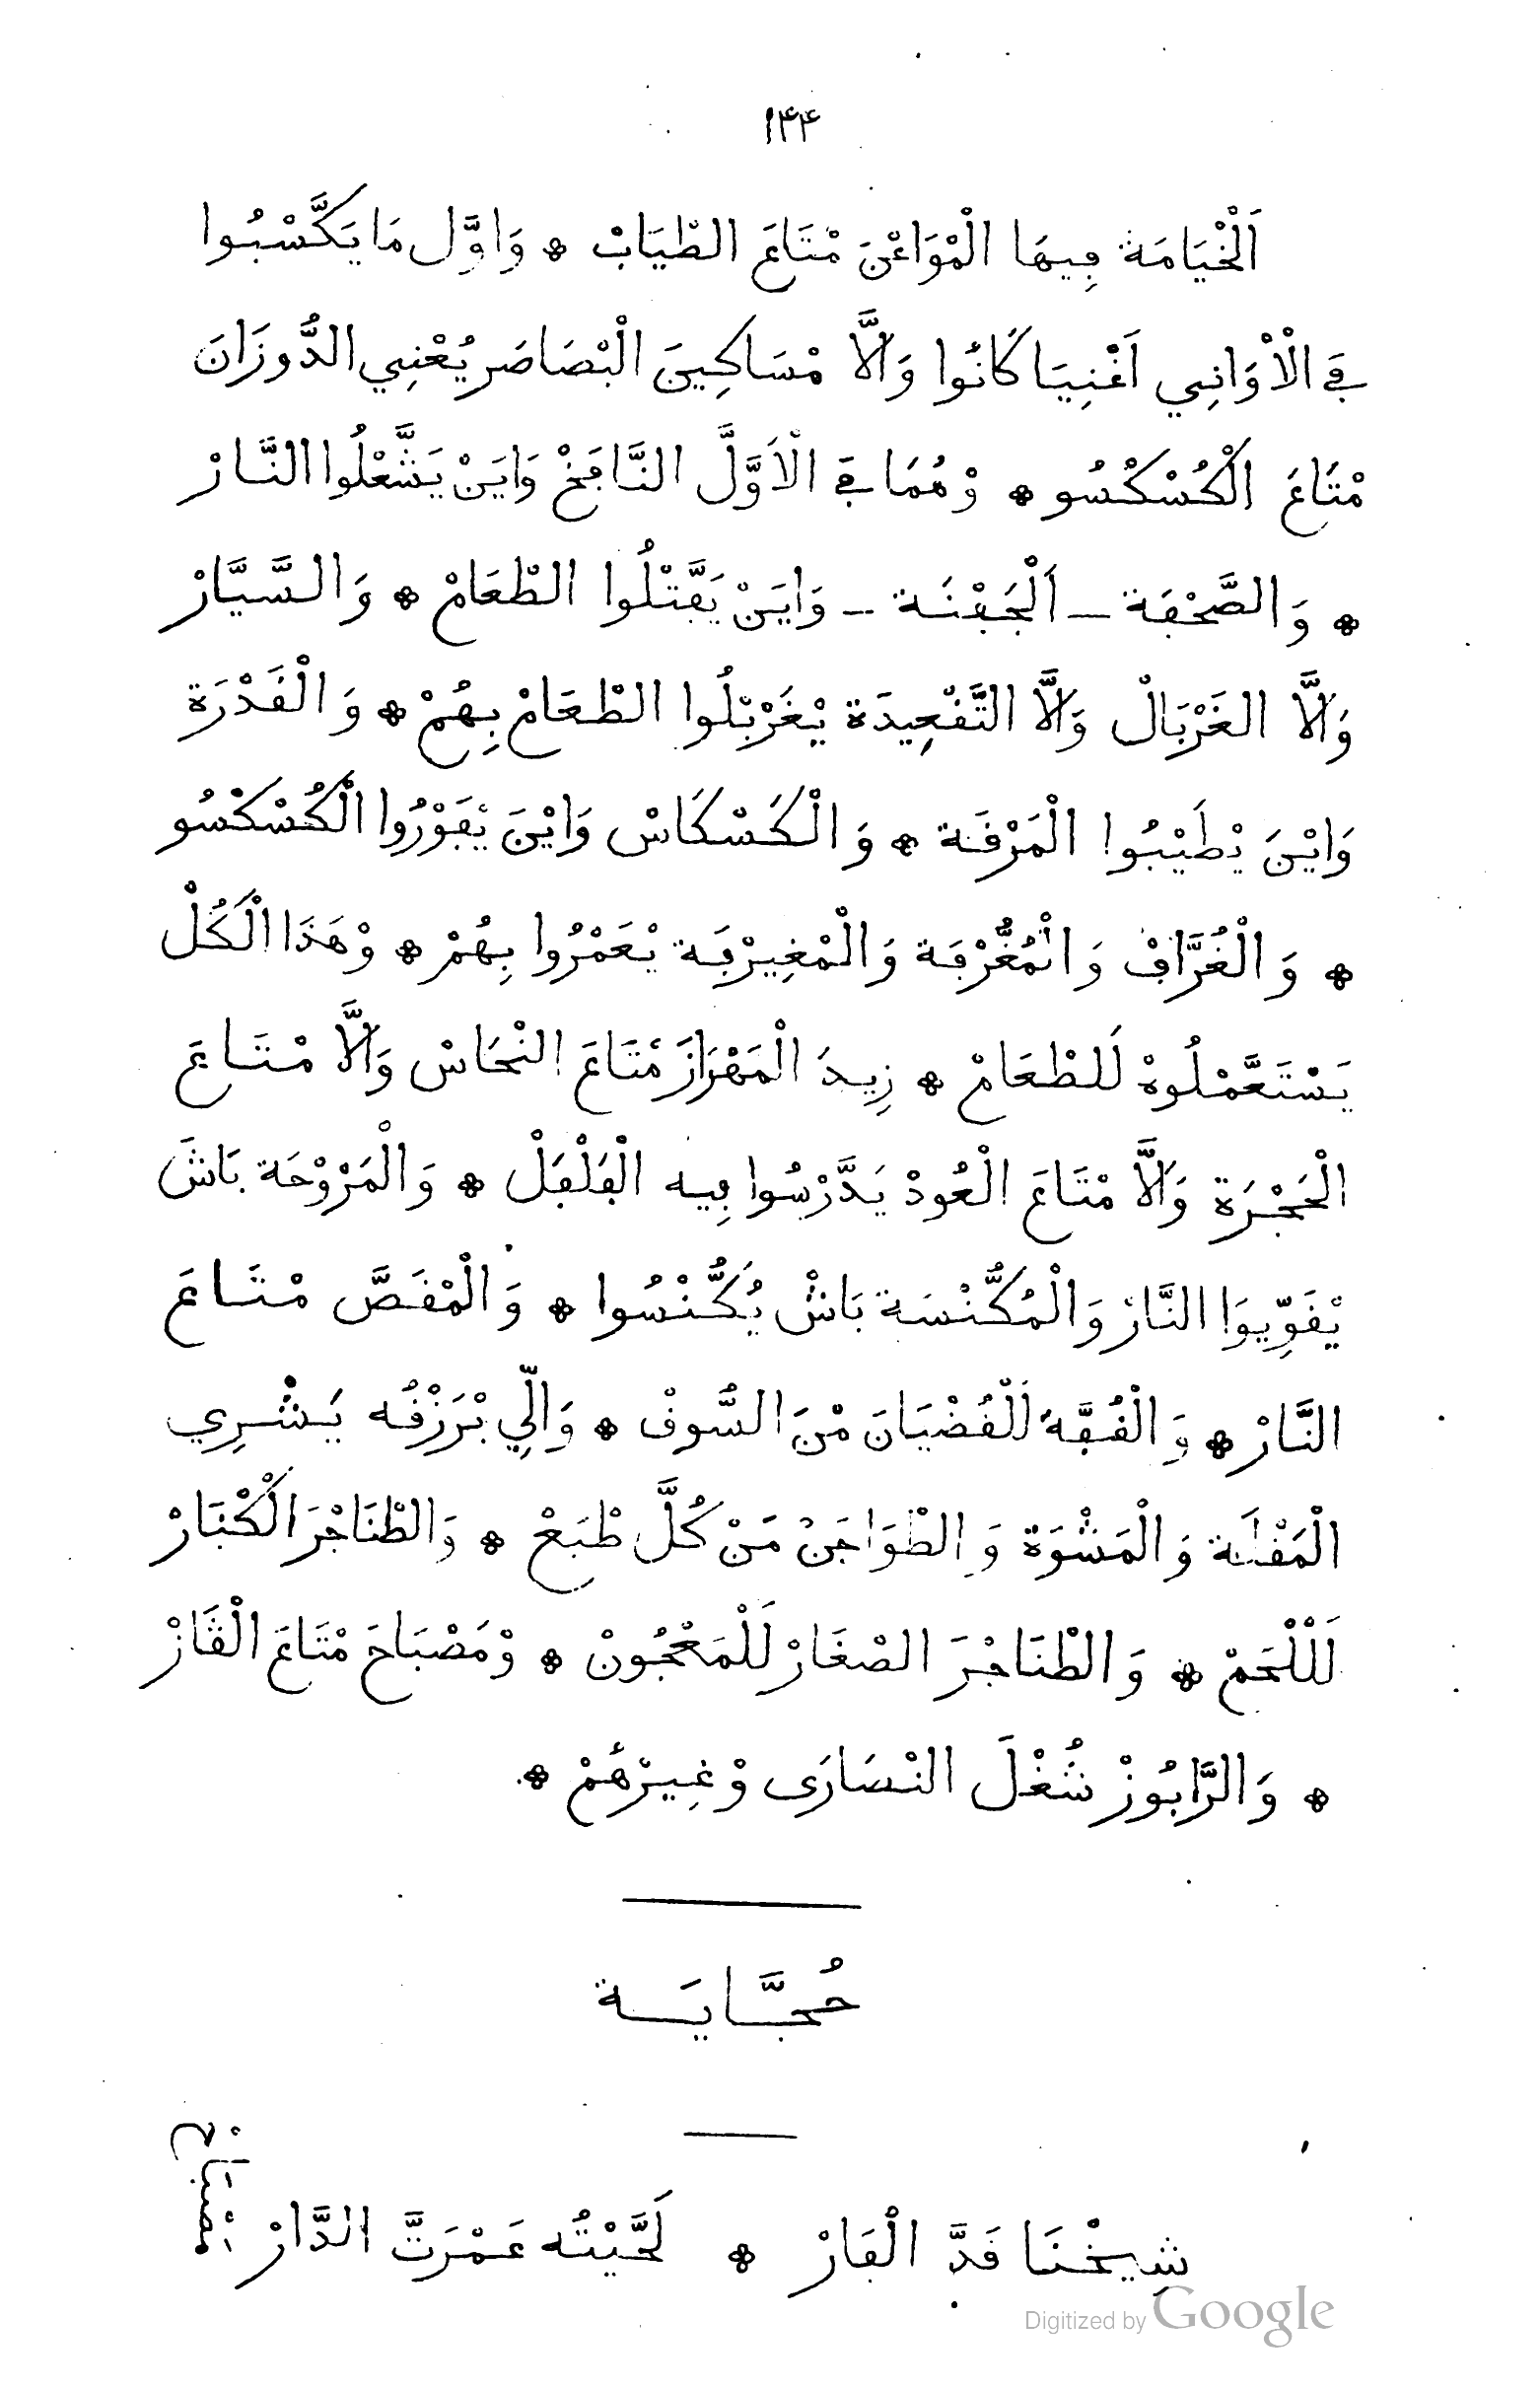 ١٤٤
اَلْخْيَامَة ڢِيهَا الْمْوَاعْنَ مْتَاعَ الطّْيَابْ * وَاوَّل مَا يَكَّسْبُوا
ڢَي الْاْوَانِي اَغْنِيَا كَانُوا وَالَّا مْسَاكِينَ الْبْصَاصَر يُعْنِي الدُّوزَانَ
مْتَاعَ اَلْكُسْكْسُو * وْهُمَا ڢَي الْاَوَّلَّ النَّاڢَخْ وَايَنْ يَشَّعْلُوا النَّارْ
* وَالصَّحْڢَة _ اَلْجَڢْنَة _ وَايَنْ يَڢَّتْلُوا الطّْعَامْ * وَالسَّيَّارْ
وَالَّا الغَرْبَالْ وَالَّا التَّڧْعِيدَة يْغَرْبْلُوا الطّْعَامْ بِهُمْ * وَالْڧَدْرَة
وَايْنَ يْطَيْبُوا الْمَرْڧَة * وَالْكَسْكَاسْ وَايْنَ يْڢَوْرُوا الْكُسْكْسُو
* وَالْغُرَّاڢْ وَالْمُغُّرْڢَة وَالْمْغِيرْڢَة يْعَمْرُوا بِهُمْ * وْهَذَا الْكُلْ
يَسْتَعَّمْلُوهْ لَلطّْعَامْ * زِيدَ الْمَهْرَازَ مْتَاعَ النّْحَاسْ وَالَّا مْتَاعَ
الْحَجْرَة وَالَّا مْتَاعَ الْعُودْ يَدَّرْسُوا ڢِيه الْڢَلْڢَلْ * وَالْمَرْوْحَة بَاشَ
يْڧَوِّيوَا النَّارْ وَالْمُكُّنْسَة بَاشْ يُكُّنْسُوا * وَالْمْڧَصَّ مْتَاعَ
النَّارْ * وَالْڧُڢَّةْ لَلْڧُضْيَانَ مْنَ السُّوڧْ * وَالِّي بْرَزْڧُه يَشْرِي
الْمَڧْلَة وَالْمَشْوَة وَالطّْوَاجَنْ مَنْ كُلَّ طْبَعْ * وَالطّْنَاجْرَ الْكْبَارْ
لَلْلْحَمْ * وَالطّْنَاجْرَ الصّْغَارْ لَلْمَعْجُونْ * وْمَصْبَاحَ مْتَاعَ الْڨَازْ
* وَالرَّابُوزْ شُغْلَ النْصَارَى وْغِيرْهُمْ *
حُجَّايَة
شِيخْنَا ڧَدَّ الْڢَارْ * لَحَّيْتُه عَمْرَتَّ الدَّارْ